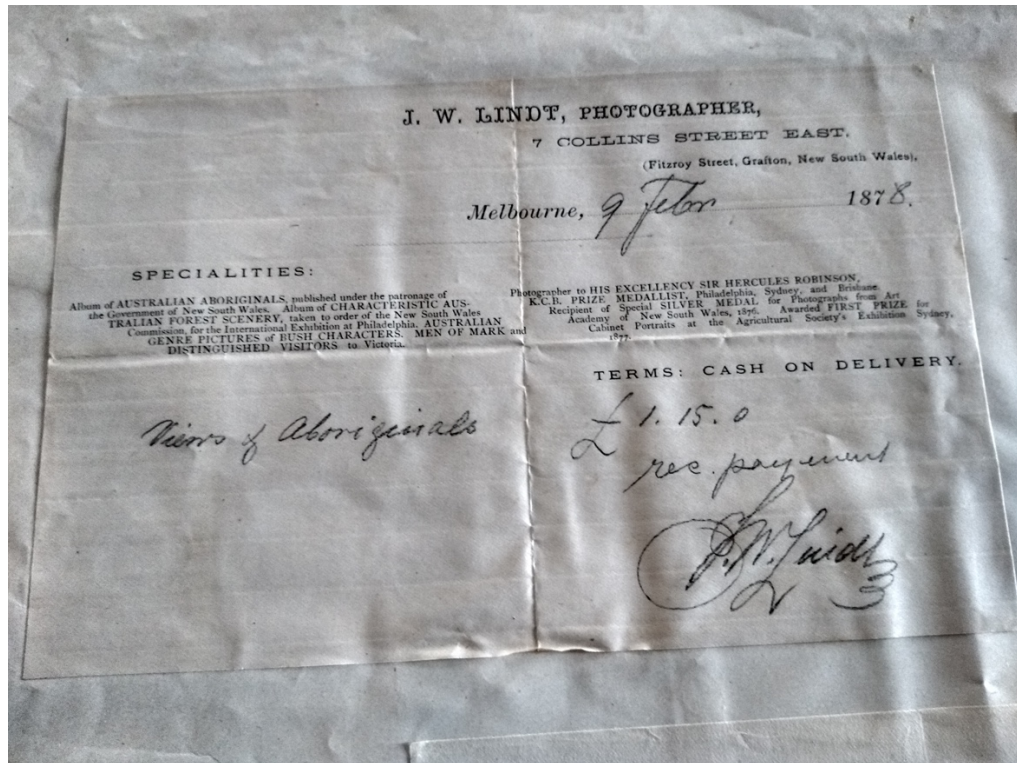 J. W. LINDT, PHOTOGRAPHER,
7 COLLINS STREET EAST.
(Fitzroy Street, Grafton, New South Wales).
Melbourne, 9 Febr 1878.
SPECIALITIES:
Album of AUSTRALIAN ABORIGINALS, published under the patronage of
the Government of New South Wales. Album of CHARACTERISTIC AUS-
TRALIAN FOREST SCENERY, taken to order of the New South Wales
Commission, for the International Exhibition at Philadelphia. AUSTRALIAN
GENRE PICTURES of BUSH CHARACTERS. MEN OF MARK and
DISTINGUISHED VISITORS to Victoria.
Photographer to HIS EXCELLENCY SIR HERCULES ROBINSON,
K.C.B. PRIZE MEDALLIST, Philadelphia, Sydney, and Brisbane.
Recipient of Special SILVER MEDAL for Photographs from Art
Academy of New South Wales, 1876. Awarded FIRST PRIZE for
Cabinet Portraits at the Agricultural Society's Exhibition Sydney,
1877.
TERMS: CASH ON DELIVERY.
Views of Aboriginals
£1.15.0
rec. payment
J.W. Lindt